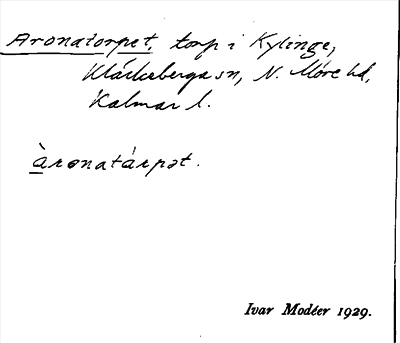 Aronatorpet, torp i Kylinge,
Kläckeberga sn, N. Möre hd,
Kalmar l.
àronatárpət.
Ivar Modéer 1929.